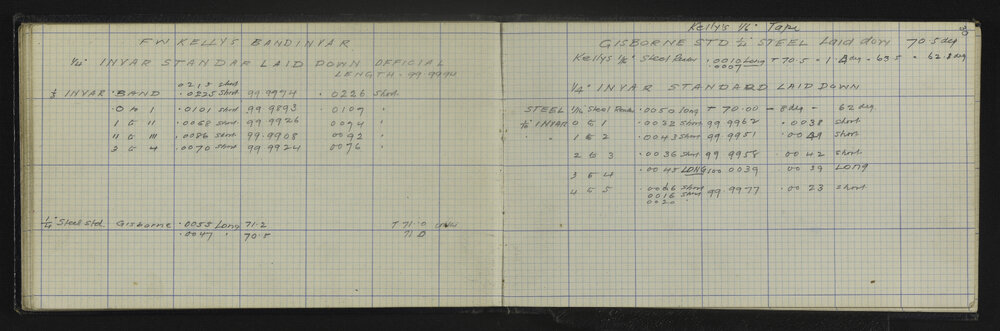 F W KELLYS BAND INVAR
1/4" INVAR STANDAR LAID DOWN OFFICIAL
LENGTH . 99.9994
0215 short
1/8 INVAR . BAND .0225 short 99 9994 . 0226 Short
0 to 1 .0101 short 99 9893 0107 "
1 to 11 .0068 short 99 9926 0074 "
11 to 111 .0086 short 99.9908 0092 "
3 to 4 .0070 short 99 9924 0076 "
1/4" Steel Std. Gisborne .0055 Long 71.2 T 71.0
.0047 " 70.5 71.0
Kelly's 1/16" Tape
GISBORNE STD 1/4" STEEL Laid down 70.5 deg
Kellys 1/16" Steel .0010 Long T 70.5 - 1.4 deg - 63.5 - 62.1 deg
0007
1/4" INVAR STANDARD LAID DOWN
STEEL 1/16 Steel .0050 long T 70.00 - 8 deg - 62 deg
1/8" INVAR 0 to 1 .0032 short 99 9962 .0038 short
" " 1 to 2 .0043 short 99 9951 .0049 short
2 to 3 .0036 short 99 9958 .0042 short
3 to 4 .0045 LONG 100 0039 .0039 Long
4 to 5 .0026 short 99.9977 .0023 short
0016 short
0020 "